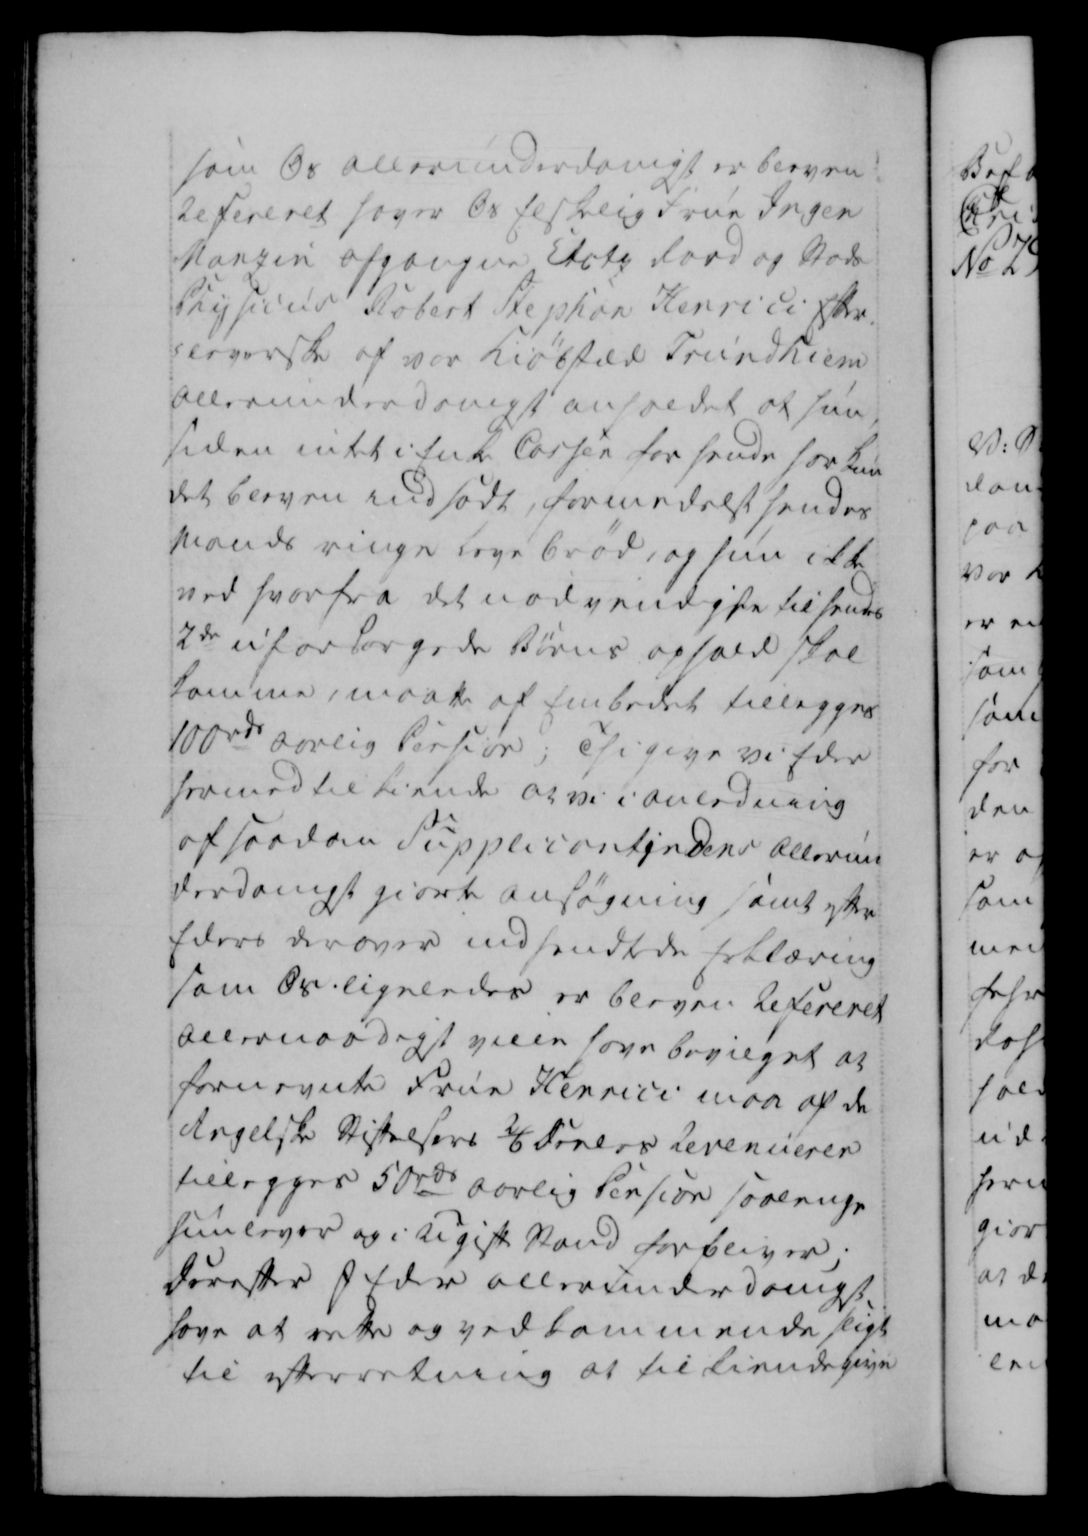 som Os allerunderdanigst er bleven
Refereret haver Os Elskelig Frue Inger
Manzin afgangne Etatz Raad og Stads
Physicus Robert Stephan Henrici Efter-
leverske af vor Kiöbstæd Trundhiem
allerunderdanigst anholdet at hun,
siden intet i Enke Cassen for hende har kun
det bleven indsadt, formedelst hendes
Mands ringe Leve bröd, og hun ikke
ved hvorfra det nødvendigste til hendes
2de uforsorgede Börns ophold skal
komme, maatte af Embedet tillegges
100 rdr aarlig Pension; Thi give vi Eder
hermed til kiende at vi i anledning
af saadan Supplicantindens allerun
derdanigst giorte ansögning samt efter
Eders derover indsendte Erklæring
som Os ligeledes er bleven Refereret
allernaadigst ville have bevilget at
fornevnte Frue Henrici maa af de
Angelske Stiftelsers Revenüer
tillegges 50 rdr aarlig Pension saalenge
hun lever og i Ugift Stand forbliver;
Derefter I Eder allerunderdanigst
have at rette og vedkommende sligt
til efterretning at tilkiendegive
Befa
No 29
dan
paa
vor
er
som
som
for
den
er
som
med
ud
giør
at de
ma